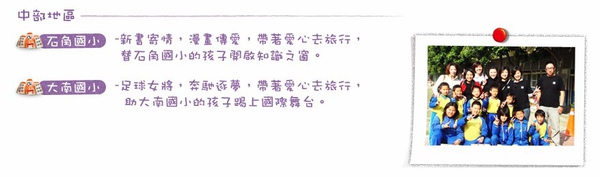 中部地區
石角國小 -新書寄情，漫畫傳愛，帶著愛心去旅行，
替石角國小的孩子開啟知識之窗。
大南國小 -足球女將，奔馳逐夢，帶著愛心去旅行，
助大南國小的孩子踢上國際舞台。